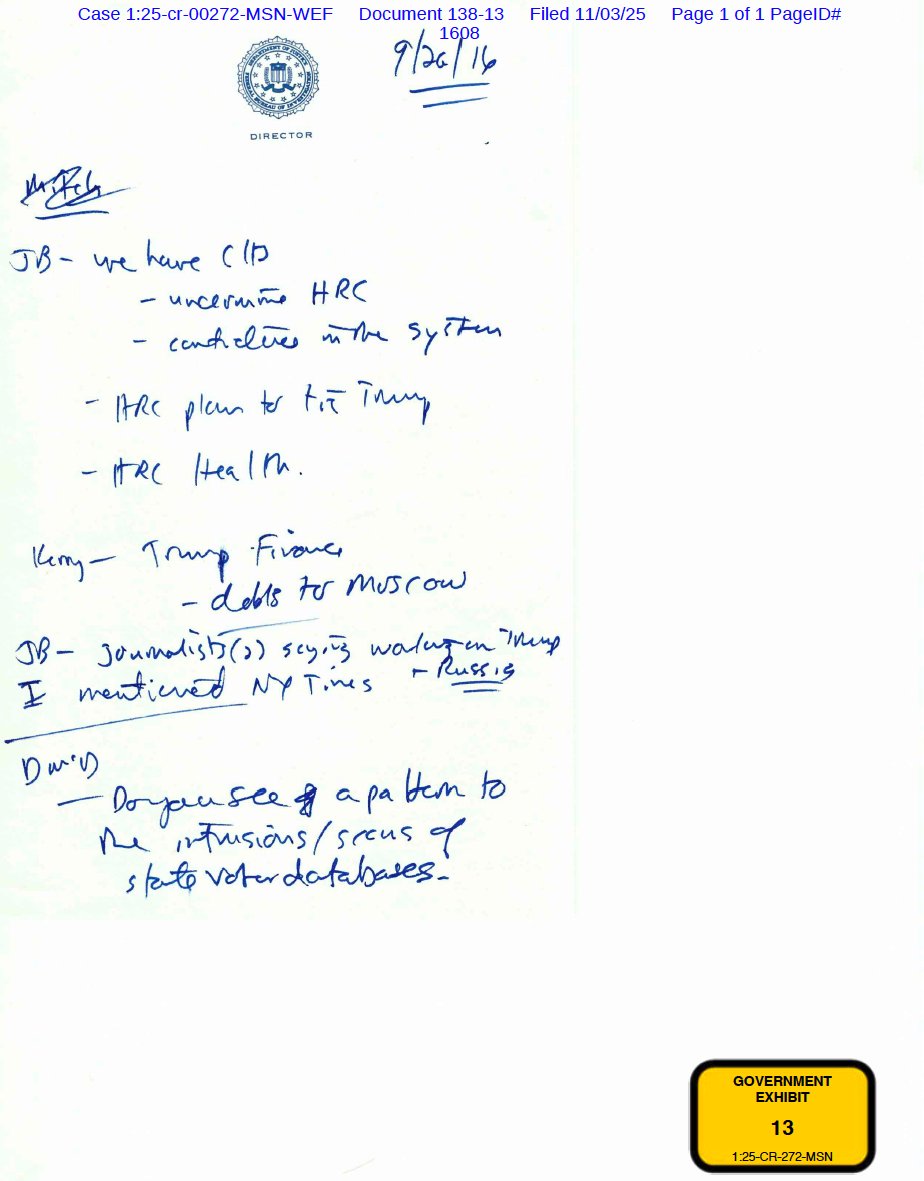 Case 1:25-cr-00272-MSN-WEF Document 138-13 Filed 11/03/25 Page 1 of 1 PageID#
1608
9/26/16
DEPARTMENT OF JUSTICE
FEDERAL BUREAU OF INVESTIGATION
DIRECTOR
JB - we have
- undermine HRC
- candidates in the system
- HRC plan to tie Trump
- HRC Health.
Kerry - Trump Finance
- debts to Moscow
JB - journalists(2) saying working on Trump
+ Russia
I mentioned NY Times
D McD
- Do you see a pattern to
the intrusions/scans of
state voter databases.
GOVERNMENT
EXHIBIT
13
1:25-CR-272-MSN